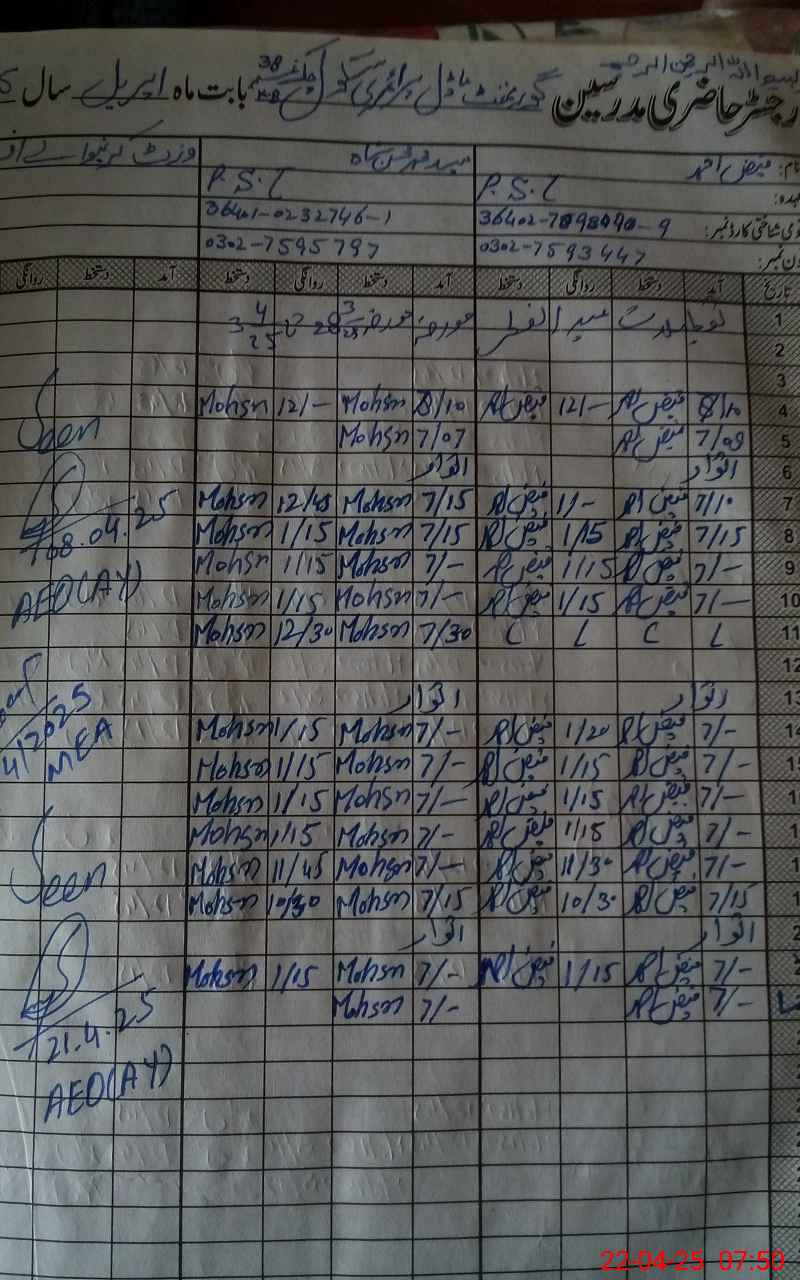 بسم اللہ الرحمن الرحیم
رجسٹر حاضری مدرسین گورنمنٹ ماڈل پرائمری سکول چک نمبر 38 بابت ماہ اپریل سال
نام: فیض احمد سید محمد محسن شاہ
عہدہ: P.S.T P.S.T
قومی شناختی کارڈ نمبر: 36401-0232746-1
فون نمبر: 0302-7593447 0302-7595797
تاریخ آمد دستخط روانگی دستخط آمد دستخط روانگی دستخط آمد دستخط روانگی
1 تعطیلات عید الفطر مورخہ
2
3
4 8/10 فیض 12/- فیض 8/10 Mohsn 12/- Mohsn
5 7/09 فیض 7/07 Mohsn
6 اتوار اتوار
7 7/10 فیض 1/- فیض 7/15 Mohsn 12/45 Mohsn
8 7/15 فیض 1/15 فیض 7/15 Mohsn 1/15 Mohsn
9 7/- فیض 1/15 فیض 7/- Mohsn 1/15 Mohsn
10 7/- فیض 1/15 فیض 7/- Mohsn 1/15 Mohsn
11 L C L C 7/30 Mohsn 12/30 Mohsn
12
13 اتوار اتوار
14 7/- فیض 1/20 فیض 7/- Mohsn 1/15 Mohsn
7/- فیض 1/15 فیض 7/- Mohsn 1/15 Mohsn
7/- فیض 1/15 فیض 7/- Mohsn 1/15 Mohsn
7/- فیض 1/15 فیض 7/- Mohsn 1/15 Mohsn
7/- فیض 11/30 فیض 7/- Mohsn 11/45 Mohsn
7/15 فیض 10/30 فیض 7/15 Mohsn 10/30 Mohsn
اتوار اتوار
7/- فیض 1/15 فیض 7/- Mohsn 1/15 Mohsn
7/- فیض 7/- Mohsn
Seen
08.04.25
AEO(AY)
4/2025
MEA
Seen
21.4.25
AEO(AY)
22-04-25 07:50